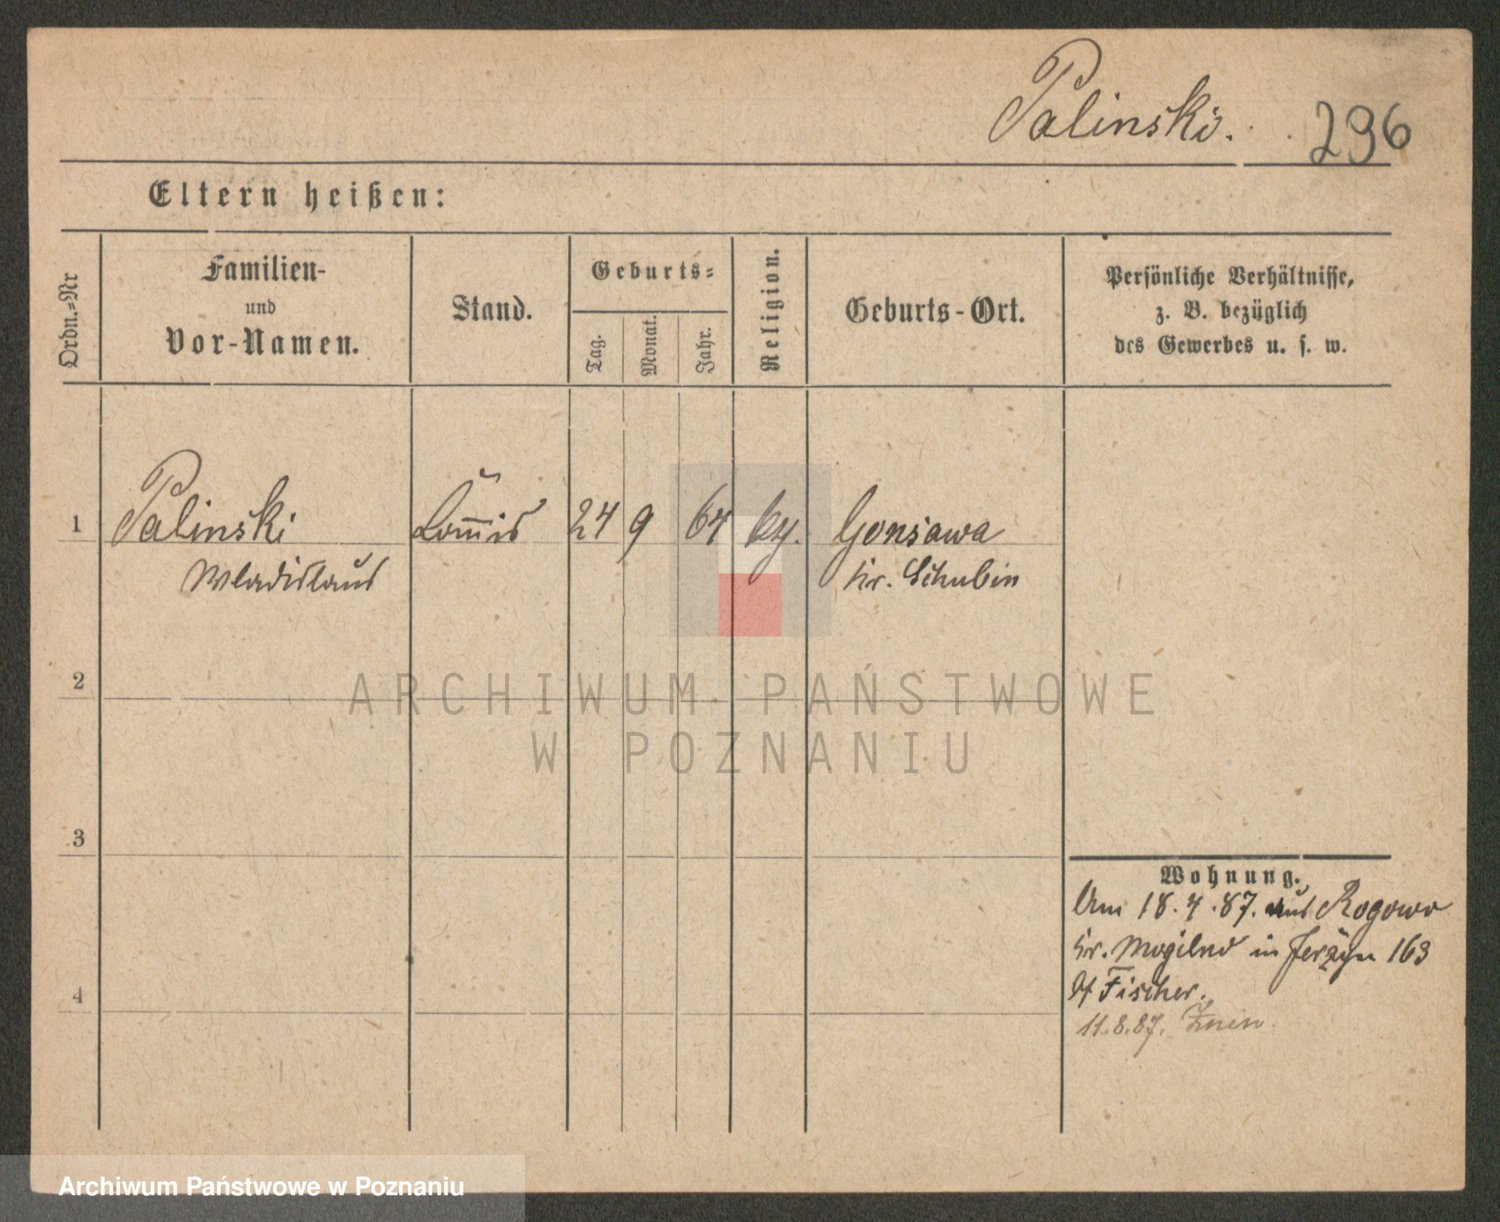 Palinski. 296
Eltern heißen:
Ordn.-Nr
Familien-
und
Vor-Namen.
Stand.
Geburts-
Tag.
Monat.
Jahr.
Religion.
Geburts-Ort.
Persönliche Verhältnisse,
z. B. bezüglich
des Gewerbes u. s. w.
1 Palinski Commis 24 9 64 Gonsawa
Wladislaus Kr. Schubin
2
ARCHIWUM PAŃSTWOWE
W POZNANIU
3
Wohnung.
Am 18.4.87. aus Rogowo
Kr. Mogilno in Jerzyn 163
Fischer.
4
11.8.87. Znin
Archiwum Państwowe w Poznaniu